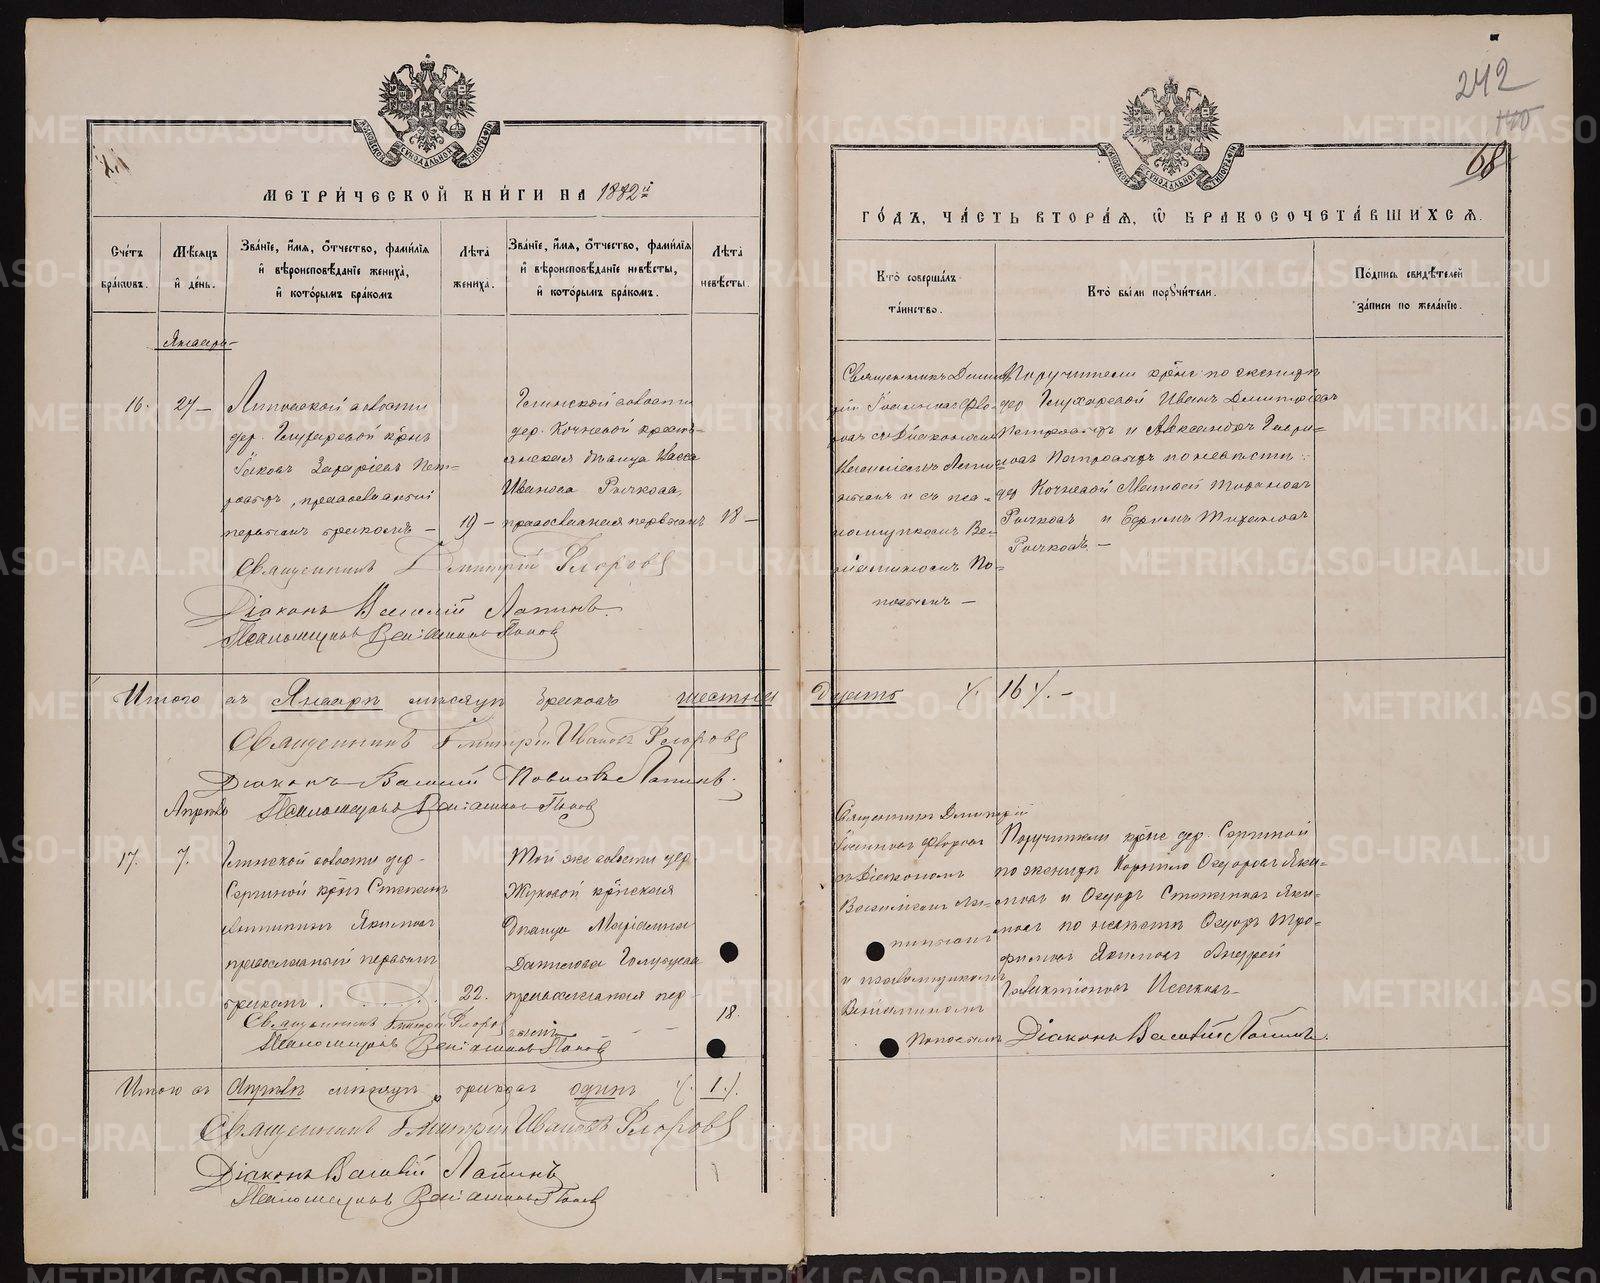 МЕТРИ́ЧЕСКОЙ КНИ́ГИ НА 1882й
Сче́тъ бра́ковъ.
Мѣсяцъ и́ де́нь.
Зва́нїе, и́мя, о́тчество, фами́лїя и́ вѣроисповѣ́данїе жениха̀, и́ кото́рымъ бра́комъ
Лѣта̀ жениха̀.
Зва́нїе, и́мя, о́тчество, фами́лїя и́ вѣроисповѣ́данїе невѣ́сты, и́ кото́рымъ бра́комъ.
Лѣта̀ невѣ́сты.
Январь
16.
27 –
дер. Глухаревой
Іаковъ Захаріевъ Пет-
ровыхъ, православный
первымъ бракомъ –
19 –
дер. Кочневой крестъ-
янская дѣвица Васса
Иванова Рычкова,
православная первымъ
18 –
Священникъ Димитрій Флоровъ
Діаконъ Василій Лапинъ.
Псаломщикъ Веніаминъ Поповъ
Итого въ Январѣ мѣсяцѣ браковъ шестнадцать /. 16 /. –
Священникъ Димитрій Ивановъ Флоровъ
Діаконъ Василій Лапинъ.
Псаломщикъ Веніаминъ Поповъ
Апрѣль
17.
7.
волости дер.
Степанъ
Якимовъ
православный первымъ
бракомъ
22.
Той же волости дер.
Жуковой
дѣвица
Данилова
православная пер-
вымъ
18.
Священникъ Димитрій Флоровъ
Псаломщикъ Веніаминъ Поповъ
Итого въ Апрѣлѣ мѣсяцѣ браковъ одинъ /. 1 /.
Священникъ Димитрій Ивановъ Флоровъ
Діаконъ Василій Лапинъ
Псаломщикъ Веніаминъ Поповъ
242
140
68
ГО́ДЪ, ЧА́СТЬ ВТОРА́Я, Ѡ҆ БРАКОСОЧЕТА́ВШИХСЯ.
Кто̀ соверша́лъ та́инство.
Кто̀ бы́ли пору́чители.
По́дпись свидѣ́телей за́писи по жела́нїю.
Священникъ Димит-
рій Іоанновъ Фло-
ровъ съ Діакономъ
Василіемъ Лапи-
нымъ и съ пса-
ломщикомъ Ве-
ніаминомъ По-
повымъ –
Поручители по женихѣ
дер. Глухаревой Иванъ Димитріевъ
Петровыхъ и Александръ Гаври-
ловъ Петровыхъ по невѣстѣ:
дер. Кочневой Матвей Тихановъ
Рычковъ и Ефимъ Тихановъ
Рычковъ. –
Священникъ Димитрій
Іоанновъ Флоровъ
съ Діакономъ
Василіемъ Ла-
пинымъ
и псаломщикомъ
Веніаминомъ
Поповымъ
Поручители дер.
по женихѣ Корнило Ѳедоровъ Яки-
мовъ и Ѳедоръ Степановъ Яки-
мовъ по невѣстѣ Ѳедоръ Тро-
фимовъ Якимовъ Андрей
Галактіоновъ Исаковъ –
Діаконъ Василій Лапинъ.
METRIKI.GASO-URAL.RU